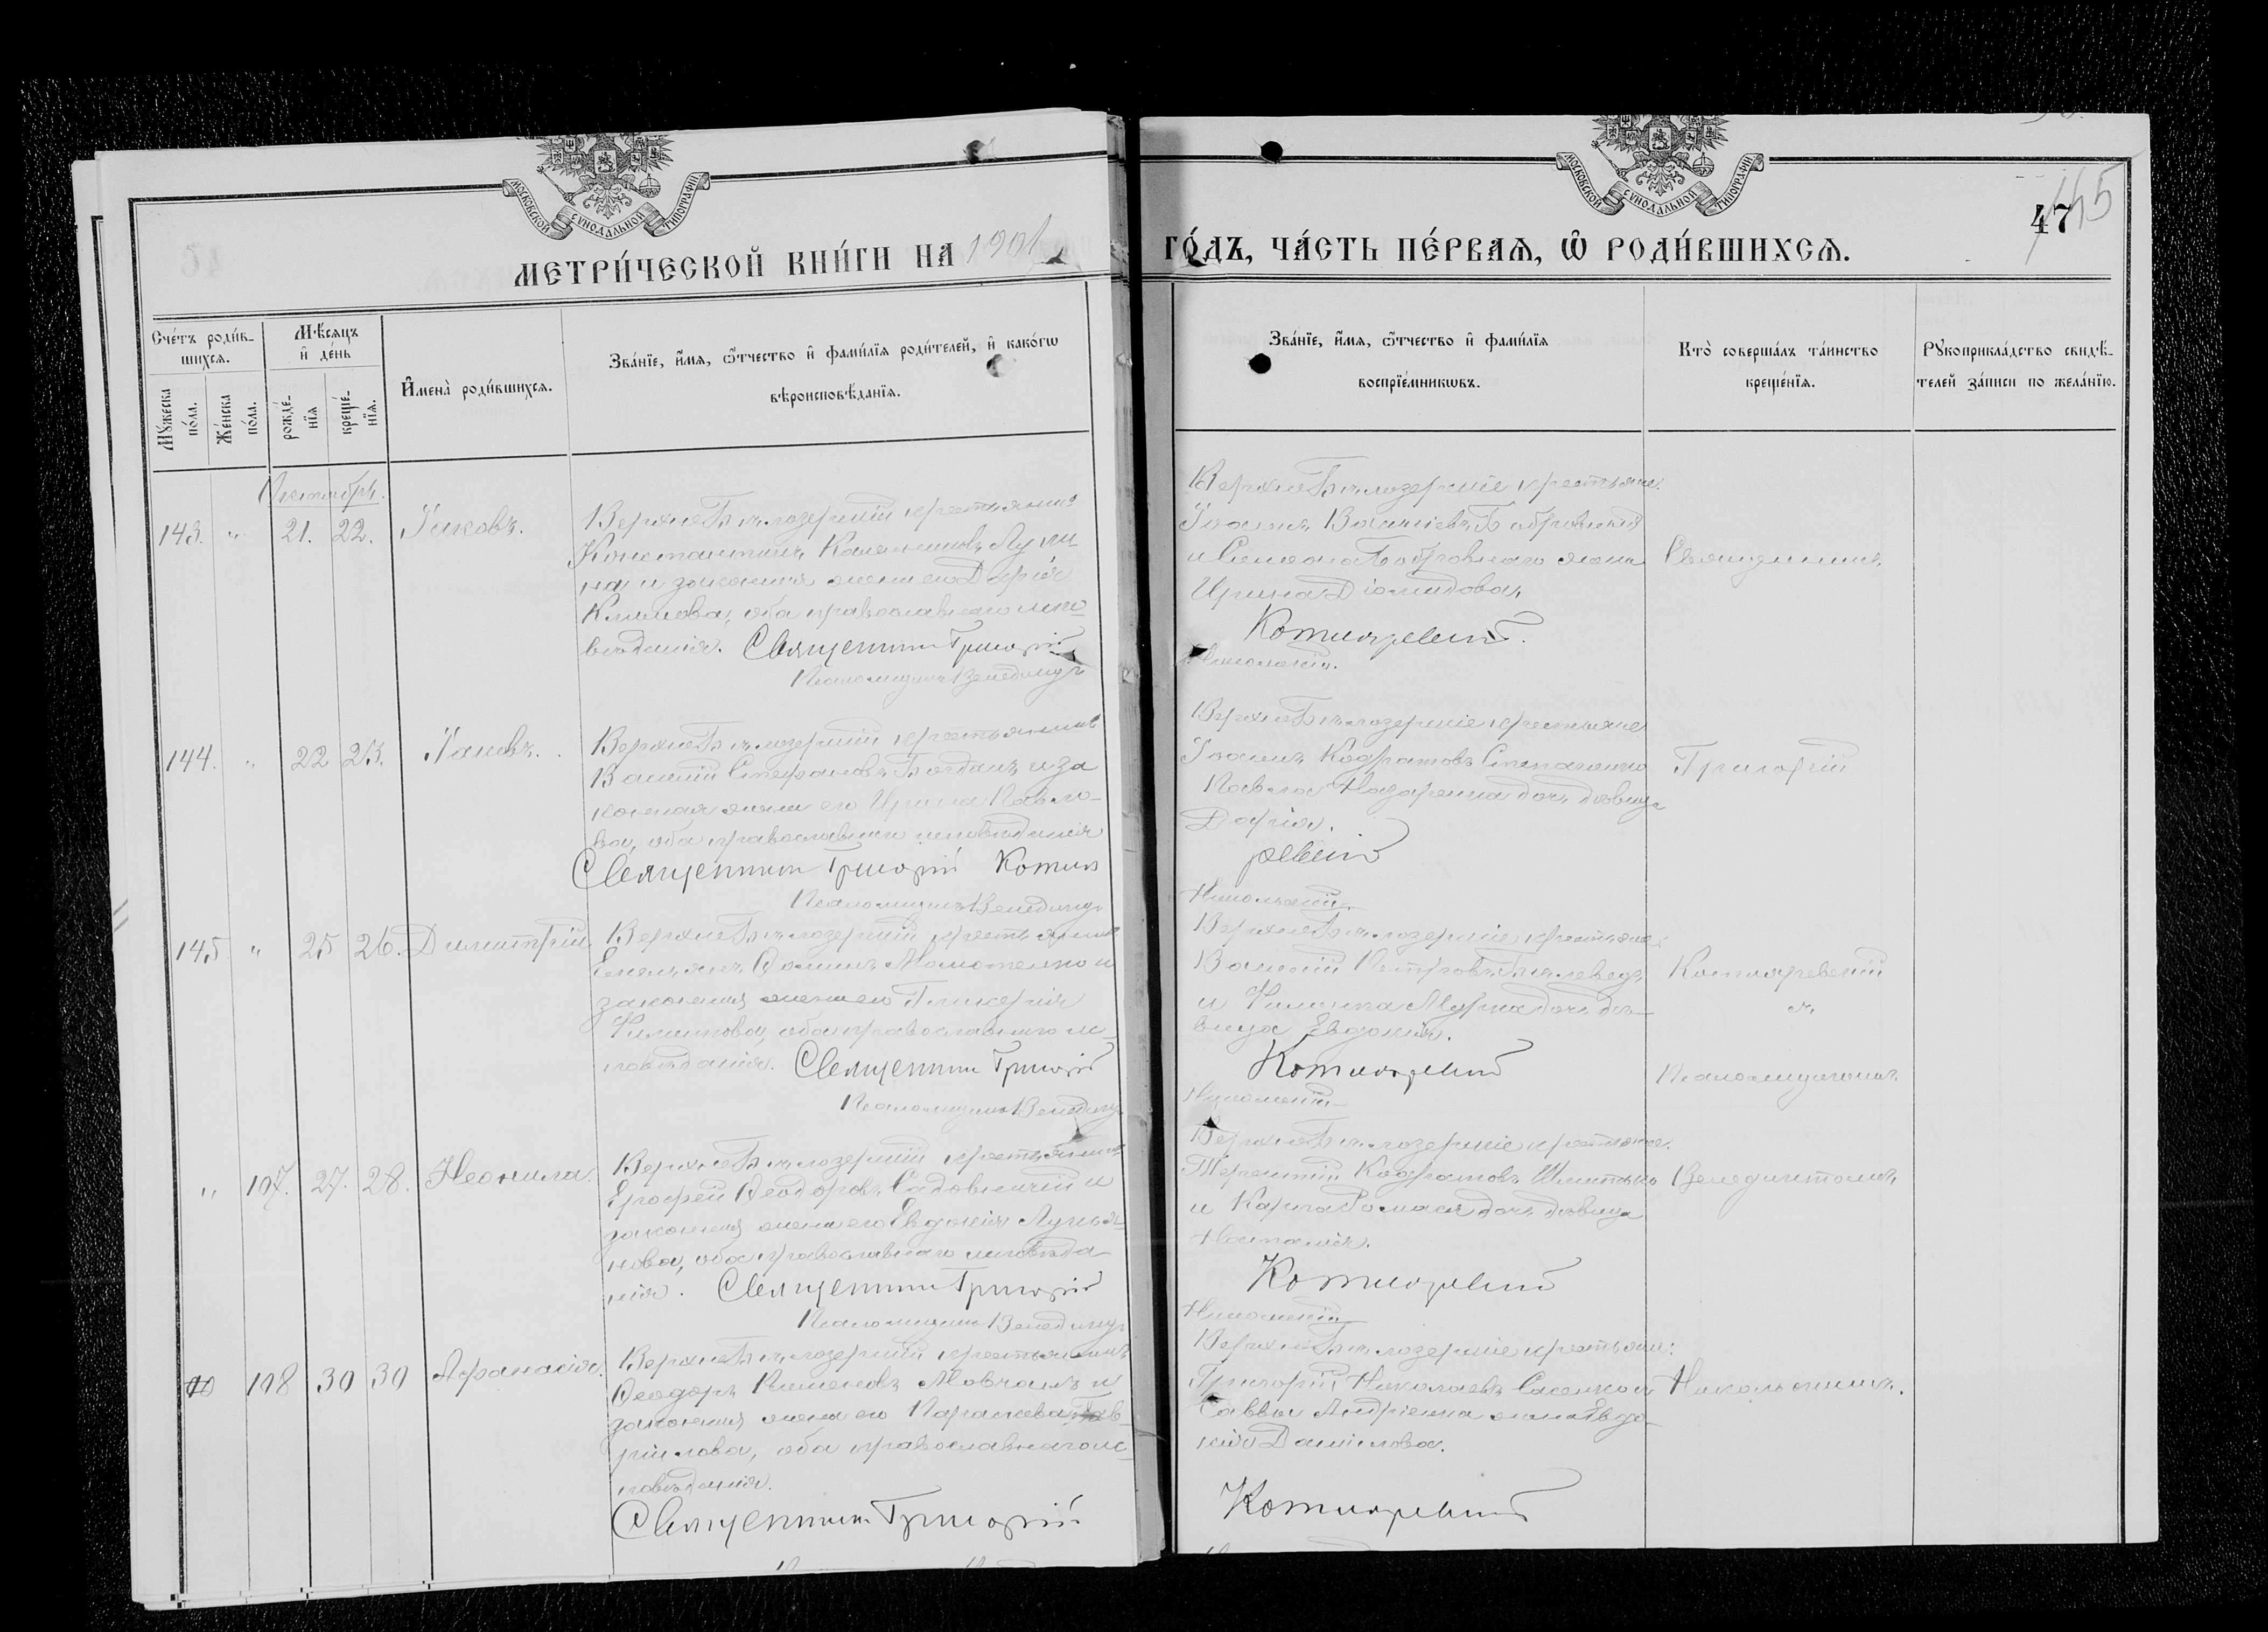 МОСКОВСКОЙ СѴНОДАЛЬНОЙ ТИПОГРАФІИ
МОСКОВСКОЙ СѴНОДАЛЬНОЙ ТИПОГРАФІИ
47
145
МЕТРИ́ЧЕСКОЙ КНИ́ГИ НА 1901
ГО́ДЪ, ЧА́СТЬ ПЕ́РВАЯ, Ѡ҆ РОДИ́ВШИХСЯ.
Сче́тъ роди́в-
шихся.
Мѣ́сяцъ
и҆ де́нь
Мꙋ́жеска
по́ла.
Же́нска
по́ла.
рожде́-
нїя
креще́-
нїя.
И҆мена̀ роди́вшихся.
Зва́нїе, и҆́мя, ѻ҆́тчество и҆ фами́лїя роди́телей, и҆ како́гѡ
вѣроисповѣ́данїя.
Зва́нїе, и҆́мя, ѻ҆́тчество и҆ фами́лїя
воспрїе́мникѡвъ.
Кто̀ соверша́лъ та́инство
креще́нїя.
Рꙋкоприкла́дство свидѣ́-
телей за́писи по жела́нїю.
143. " 21. 22. Іаковъ.
ВерхнеБѣлозерскій крестьянинъ
Константинъ
на и законная жена его Дарія
Климова, оба православнаго испо-
вѣданія. Священникъ Григорій
Псаломщикъ Венедиктъ
ВерхнеБѣлозерскіе крестьяне:
Іоаннъ Васильевъ Бобровскій
и Симеона Бобровскаго жена
Ирина Діомидова.
Котляревскій.
Никольскій.
Священникъ
144. " 22 23. Іаковъ.
ВерхнеБѣлозерскій крестьянинъ
Василій Стефановъ Богданъ и за
конная жена его Ирина Павло-
ва, оба православнаго исповѣданія
Священникъ Григорій Котля
Псаломщикъ Венедиктъ
ВерхнеБѣлозерскіе крестьяне
Іоаннъ Кодратовъ Степаненко
Павла Назаренка дочь дѣвица
Дарія.
ревскій
Никольскій.
Григорій
145 " 25 26. Димитрій.
ВерхнеБѣлозерскій крестьянинъ
Емельянъ Ѳоминъ и
законная жена его Гликерія
Филиппова, оба православнаго ис-
повѣданія. Священникъ Григорій
Псаломщикъ Венедиктъ
ВерхнеБѣлозерскіе крестьяне:
Василій Петровъ
и Филиппа дочь дѣ-
вица Евдокія.
Котляревскій
Никольскій
Котляревскій
съ
Псаломщикомъ
" 107. 27. 28. Неонила.
ВерхнеБѣлозерскій крестьянинъ
Ерофей Ѳеодоровъ Садовничій и
законная жена его Евдокія Лукья-
нова, оба православнаго исповѣда-
нія. Священникъ Григорій
Псаломщикъ Венедиктъ
ВерхнеБѣлозерскіе крестьяне:
Терентій Кодратовъ
и Карпа дочь дѣвица
Наталія.
Котляревскій
Никольскій
Венедиктомъ
108 30 30 Аѳанасія.
ВерхнеБѣлозерскій крестьянинъ
Ѳеодоръ Пименовъ Мовчанъ и
законная жена его Параскева Гав-
ріилова, оба православнаго ис-
повѣданія.
Священникъ Григорій
ВерхнеБѣлозерскіе крестьяне:
Григорій Николаевъ Сасенко и
Саввы Андріенка жена Евдо-
кія Даніилова.
Котляревскій
Никольскимъ.